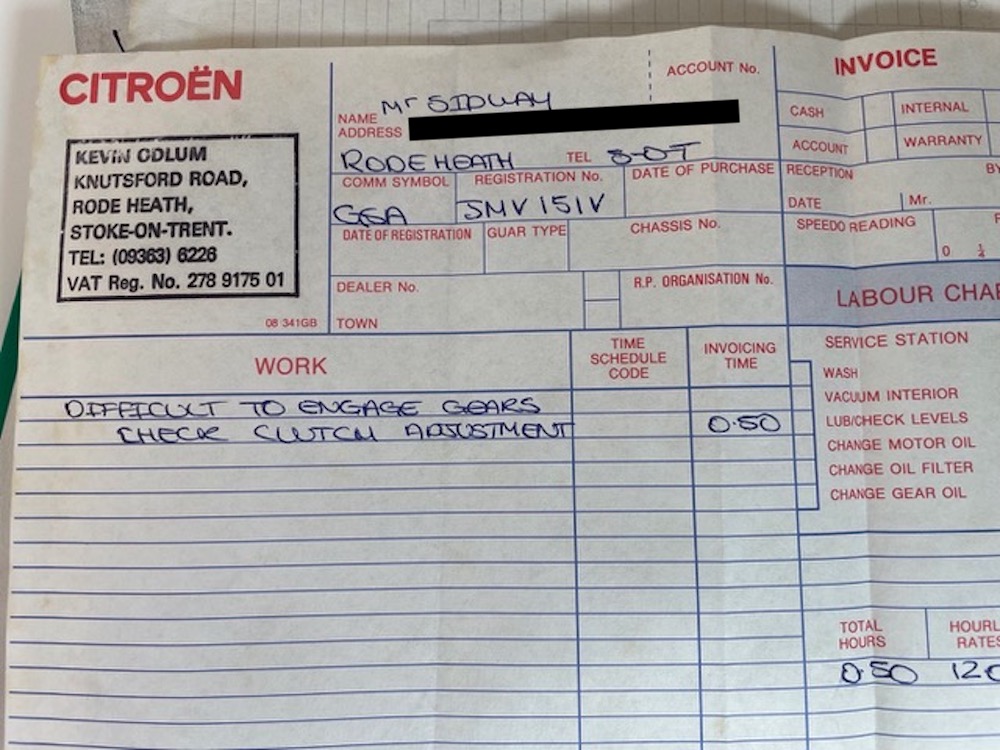 CITROËN
KEVIN ODLUM
KNUTSFORD ROAD,
RODE HEATH,
STOKE-ON-TRENT.
TEL: (09363) 6226
VAT Reg. No. 278 9175 01
08 341GB
NAME Mr SIDWAY
ADDRESS
RODE HEATH TEL S-OT
ACCOUNT No.
COMM SYMBOL REGISTRATION No. DATE OF PURCHASE
GSA JMV 151V
DATE OF REGISTRATION GUAR TYPE CHASSIS No.
DEALER No. R.P. ORGANISATION No.
TOWN
INVOICE
CASH INTERNAL
ACCOUNT WARRANTY
RECEPTION BY
DATE Mr.
SPEEDO READING
0 ¼
LABOUR CHAR
WORK TIME SCHEDULE CODE INVOICING TIME
DIFFICULT TO ENGAGE GEARS
CHECK CLUTCH ADJUSTMENT 0.50
SERVICE STATION
WASH
VACUUM INTERIOR
LUB/CHECK LEVELS
CHANGE MOTOR OIL
CHANGE OIL FILTER
CHANGE GEAR OIL
TOTAL HOURS HOURL RATES
0.50 120